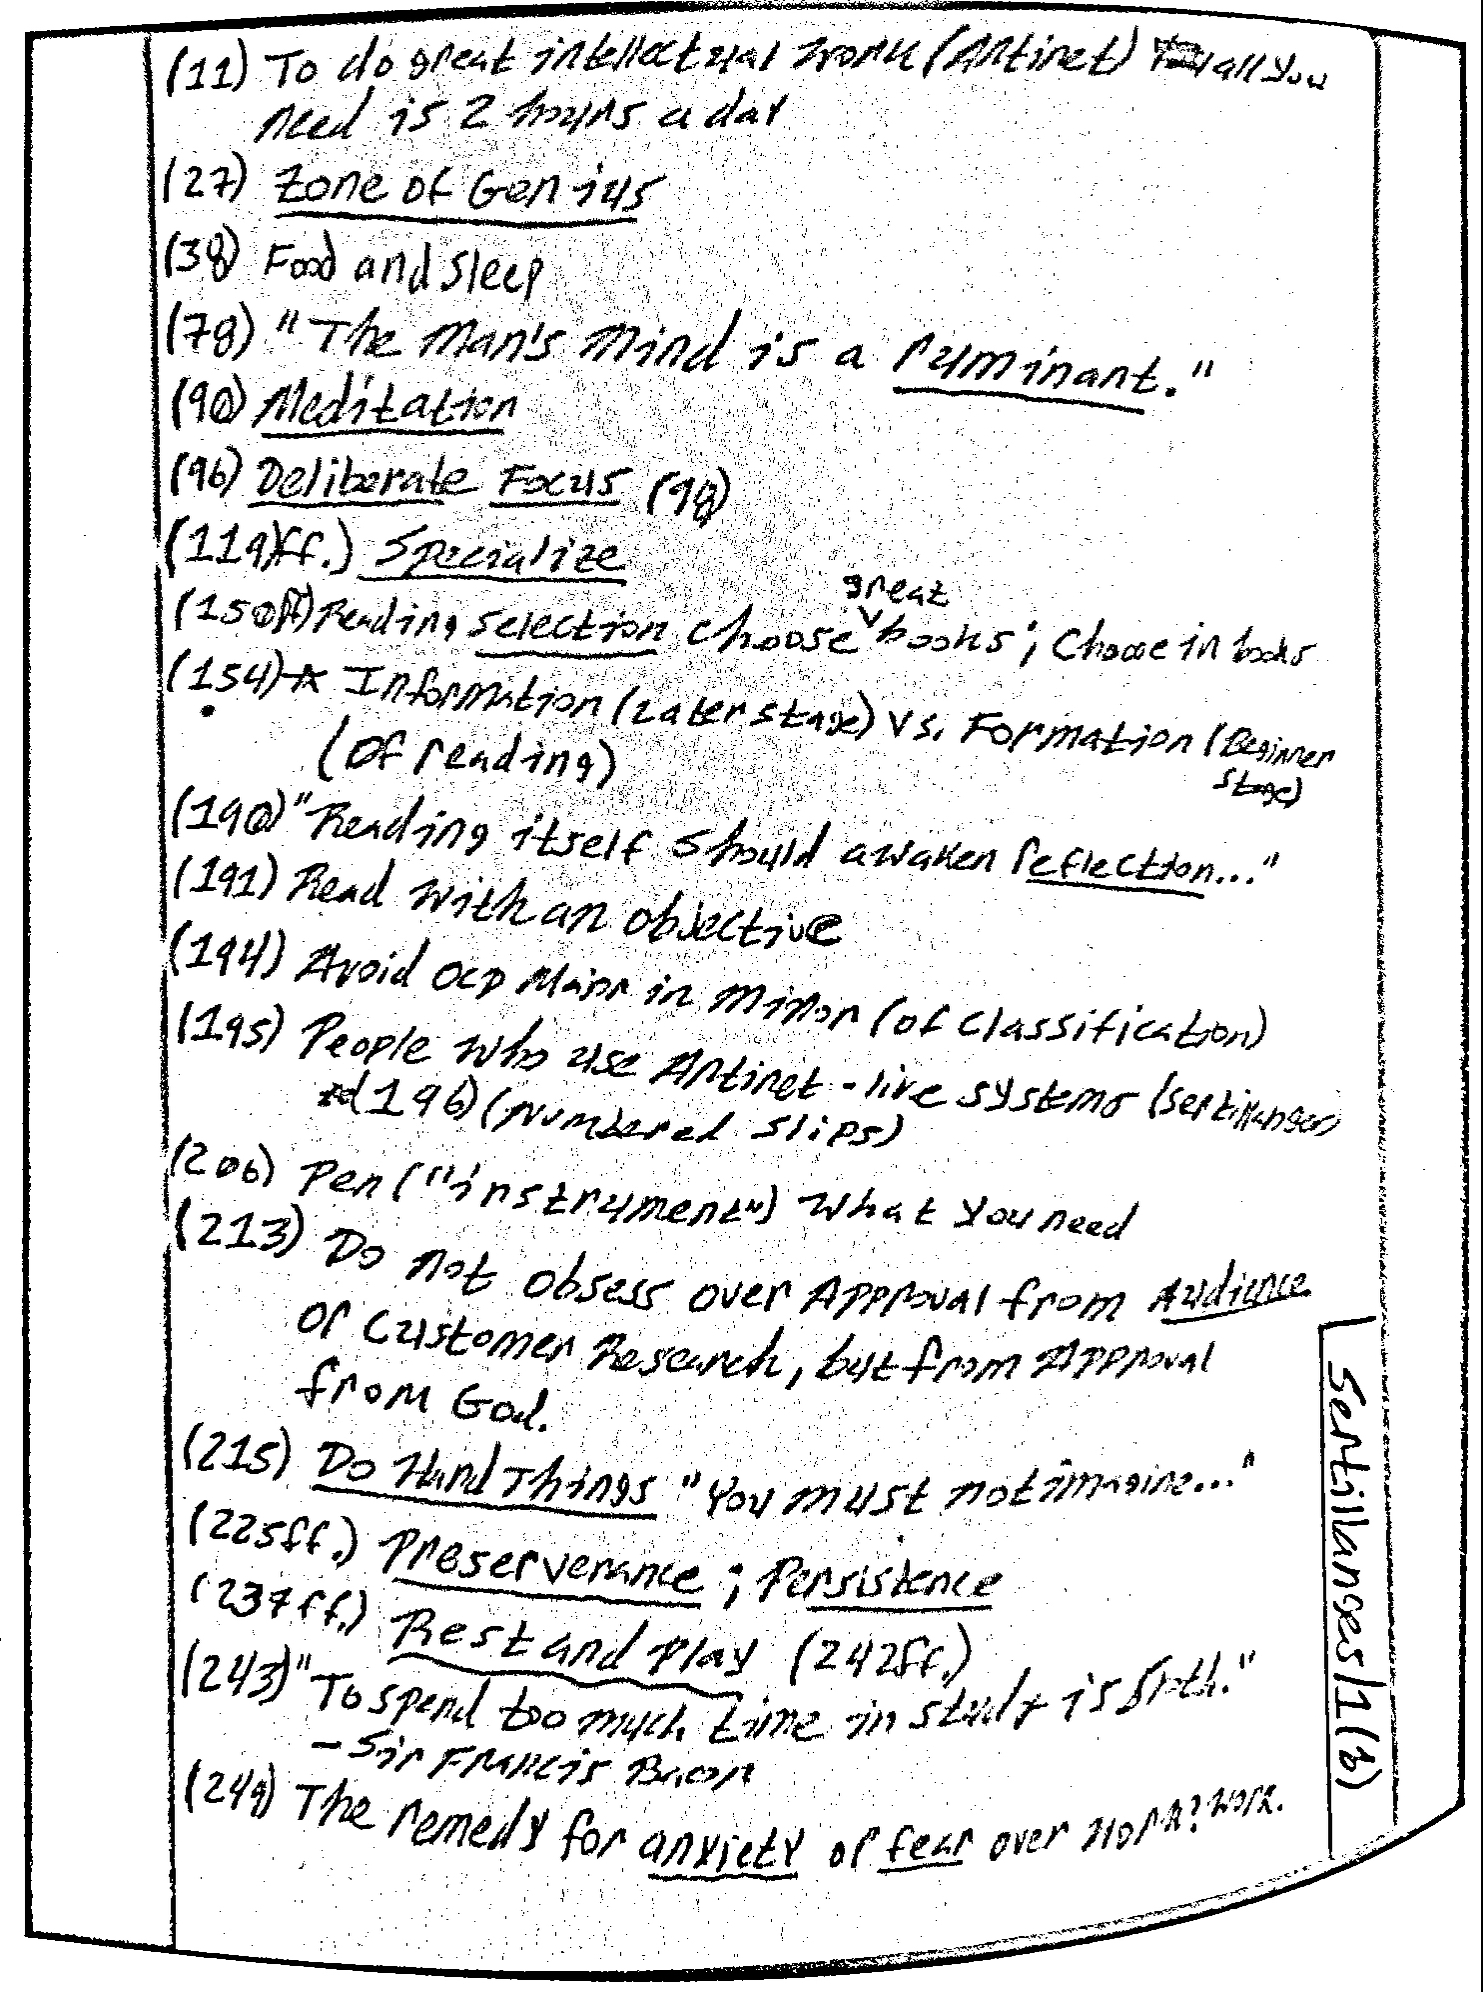 (11) To do great intellectual work (Antinet) all you
need is 2 hours a day
(27) Zone of Genius
(38) Food and sleep
(78) "The Man's Mind is a ruminant."
(90) Meditation
(96) Deliberate Focus (98)
(119)ff.) Specialize
great
(150ff) Reading selection choose ˅ books; Choose in books
(154) ☆ Information (Later stage) vs. Formation (Beginner
stage)
(Of reading)
(190) "Reading itself should awaken reflection..."
(191) Read with an objective
(194) Avoid OCD Major in Minor (of Classification)
(195) People who use Antinet-like systems (Sertillanges)
(196) (Numbered slips)
(206) Pen ("instrument") What you need
(213) Do not obsess over Approval from Audience
Or Customer Research, but from Approval
from God.
(215) Do Hard Things "You must not imagine..."
(225ff.) Preserverance; Persistence
(237ff.) Rest and Play (242ff.)
(243) "To spend too much time in study is sloth."
- Sir Francis Bacon
(249) The remedy for anxiety or fear over work? Work.
Sertillanges/1(b)